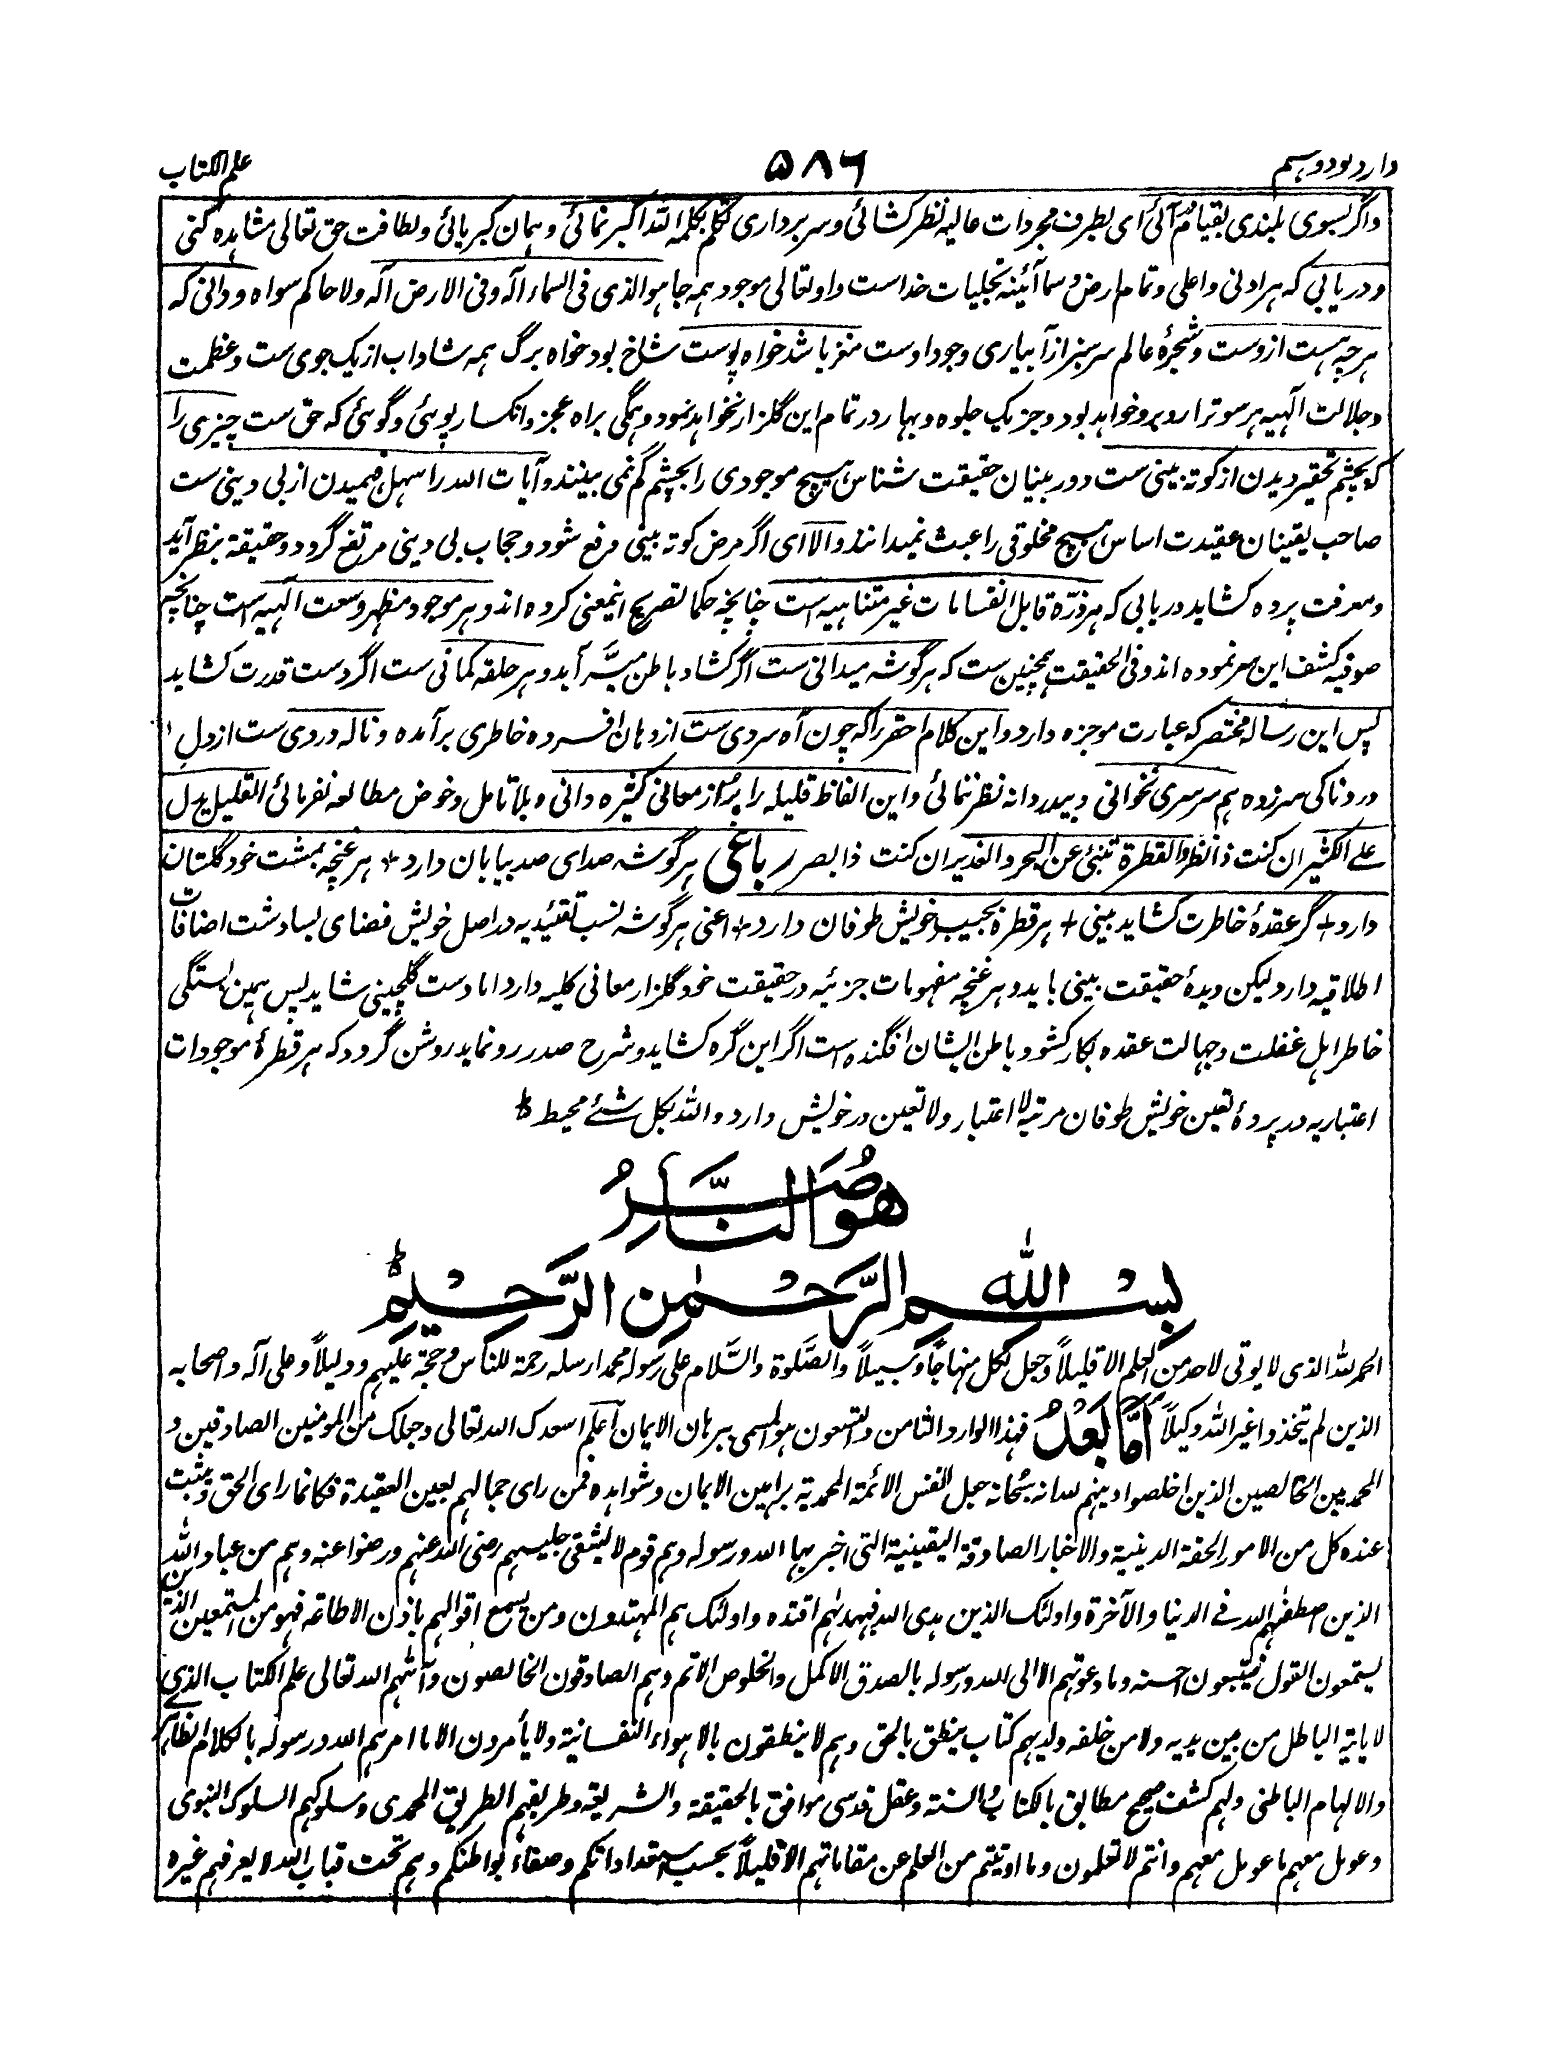 وارد نود و ہشتم
۵۸۶
علم الکتاب
واگر بسوی بلندی بقیام آئی ای بطرف مجردات عالیہ نظر کشائی و سر برداری تکلم بکلمہ اللہ اکبر نمائی و ہمان کبریائی و لطافت حق تعالی مشاہدہ کنی
و دریابی کہ ہر ادنی و اعلی و تمام ارض و سما آئینہ تجلیات خداست و او تعالی موجود ہمہ جا ہو الذی فی السماء آلہ و فی الارض آلہ ولا حاکم سواہ و دانی کہ
ہر چہ ہست ازوست و شجرۂ عالم سرسبز از آبیاری وجود اوست مغز باشد خواہ پوست شاخ بود خواہ برگ ہمہ شاداب از یک جوی ست و عظمت
و جلالت آلہیہ ہر سو ترا روبرو خواہد بود و جز یک جلوہ و بہار در تمام این گلزار نخواہد نمود و ہمگی براہ عجز و انکسار پوئی و گوئی کہ حق ست چیزی را
کہ بچشم تحقیر دیدن از کوتہ بینی ست دوربینان حقیقت شناس ہیچ موجودی را بچشم کم نمی بینند و آیات اللہ را سہل فہمیدن از بی دینی ست
صاحب یقینان عقیدت اساس ہیچ مخلوقی را عبث نمیدانند و الا ای اگر مرض کوتہ بینی مرفع شود و حجاب بی دینی مرتفع گردد و حقیقۃ بنظر آید
و معرفت پردہ کشاید دریابی کہ ہر ذرہ قابل انقسامات غیر متناہیہ است چنانچہ حکما تصریح اینمعنی کردہ اند و ہر موجود مظہر وسعت آلہیہ است چنانچہ
صوفیہ کشف این سر نمودہ اند و فی الحقیقت ہمچنین ست کہ ہر گوشہ میدانی ست اگر کشاد باطن میسّر آید و ہر حلقہ کمانی ست اگر دست قدرت کشاید
پس این رسالہ مختصر کہ عبارت موجزہ دارد و این کلام احقر را کہ چون آہ سردی ست از دہان افسردہ خاطری برآمدہ و نالہ دردی ست از دل
دردناکی سرزدہ ہم سرسری نخوانی و بیدردانہ نظر ننمائی و این الفاظ قلیلہ را پر از معانی کثیرہ دانی و بلا تامل و خوض مطالعہ نفرمائی القلیل یدل
علی الکثیر ان کنت ذا نظر و القطرۃ تنبئ عن البحر و الغدیر ان کنت ذا بصر رباعی ہر گوشہ صدای صد بیابان دارد + ہر غنچہ بمشت خود گلستان
دارد + گر عقدۂ خاطرت کشاید بینی + ہر قطرہ بجیب خویش طوفان دارد + اعنی ہر گوشہ نسب تقئیدیہ در اصل خویش فضای بسا دشت اضافات
اطلاقیہ دارد لیکن دیدۂ حقیقت بینی باید و ہر غنچہ مفہومات جزئیہ در حقیقت خود گلزار معانی کلیہ دارد اما دست گلچینی شاید پس ہمین بستگی
خاطر اہل غفلت و جہالت عقدہ بکار کشود باطن ایشان افگندہ است اگر این گرہ کشاید و شرح صدر رو نماید روشن گردد کہ ہر قطرۂ موجودات
اعتباریہ در پردۂ تعین خویش طوفان مرتبہ لا اعتبار و لا تعین در خویش دارد و اللہ بکل شئے محیط
ھو الناصر
بسم اللہ الرحمن الرحیم
الحمد للہ الذی لا یوتی لاحد من العلم الا قلیلاً و جعل لکل منہاجاً و سبیلاً والصلوۃ والسّلام علی رسولہ محمد ارسلہ رحمۃ للناس و حجۃ علیہم و دلیلاً و علی آلہ و اصحابہ
الذین لم یتخذوا غیر اللہ وکیلاً امّا بعد فہذا الوارد الثامن و التسعون ہو المسمی ببرہان الایمان اعلم اسعدک اللہ تعالی و جعلک من المومنین الصادقین و
المحمدیین الخالصین الذین اخلصوا دینہم للہ انہ سبحانہ جعل انفس الائمۃ المحمدیۃ براہین الایمان و شواہدہ فمن رای جمالہم بعین العقیدۃ فکانما رای الحق و یثبت
عندہ کل من الامور الحقۃ الدینیۃ والاخبار الصادقۃ الیقینیۃ التی اخبر بہا اللہ و رسولہ و ہم قوم لا یشقی جلیسہم رضی اللہ عنہم و رضوا عنہ و ہم من عباد اللہ
الذین اصطفہم اللہ فی الدنیا والآخرۃ و اولئک الذین ہدی اللہ فبہدہم اقتدہ و اولئک ہم المہتدون و من یسمع اقوالہم باذن الاطاعۃ فہو من المستمعین الذین
یستمعون القول فیتبعون احسنہ و ما دعوتہم الا الی اللہ و رسولہ بالصدق الاکمل والخلوص الاتم و ہم الصادقون الخالصون و آتہم اللہ تعالی علم الکتاب الذی
لا یاتیہ الباطل من بین یدیہ ولا من خلفہ ولدیہم کتاب ینطق بالحق و ہم لا ینطقون بالاہواء النفسانیۃ ولا یأمرون الا ما امرہم اللہ و رسولہ بالکلام الظاہر
والالہام الباطنی و لہم کشف صحیح مطابق بالکتاب و السنۃ و عقل قدسی موافق بالحقیقۃ و الشریعۃ و طریقہم الطریق المحمدی و سلوکہم السلوک النبوی
و عومل معہم ما عومل معہم وانتم لا تعلمون وما اوتیتم من العلم عن مقاماتہم الا قلیلاً بحسب استعداداتکم و صفاء بواطنکم و ہم تحت قباب اللہ لا یعرفہم غیرہ